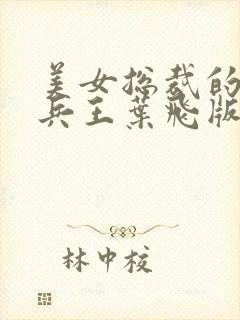 美女总裁的
兵王叶飞版
林中校